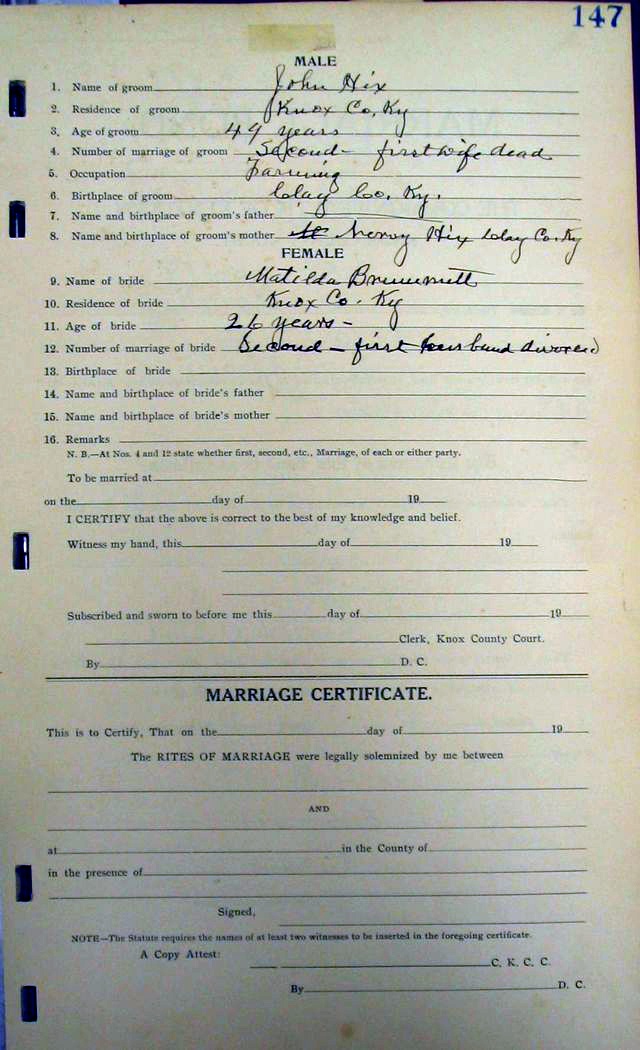 147
MALE
1. Name of groom John Hix
2. Residence of groom Knox Co, Ky
3. Age of groom 49 years
4. Number of marriage of groom Second - first wife dead
5. Occupation Farming
6. Birthplace of groom Clay Co. Ky.
7. Name and birthplace of groom's father
8. Name and birthplace of groom's mother Hix Clay Co. Ky
FEMALE
9. Name of bride Matilda Brummett
10. Residence of bride Knox Co. Ky
11. Age of bride 26 years -
12. Number of marriage of bride Second - first husband divorced
13. Birthplace of bride
14. Name and birthplace of bride's father
15. Name and birthplace of bride's mother
16. Remarks
N. B.—At Nos. 4 and 12 state whether first, second, etc., Marriage, of each or either party.
To be married at
on the day of 19
I CERTIFY that the above is correct to the best of my knowledge and belief.
Witness my hand, this day of 19
Subscribed and sworn to before me this day of 19
Clerk, Knox County Court.
By D. C.
MARRIAGE CERTIFICATE.
This is to Certify, That on the day of 19
The RITES OF MARRIAGE were legally solemnized by me between
AND
at in the County of
in the presence of
Signed,
NOTE—The Statute requires the names of at least two witnesses to be inserted in the foregoing certificate.
A Copy Attest:
C. K. C. C.
By D. C.